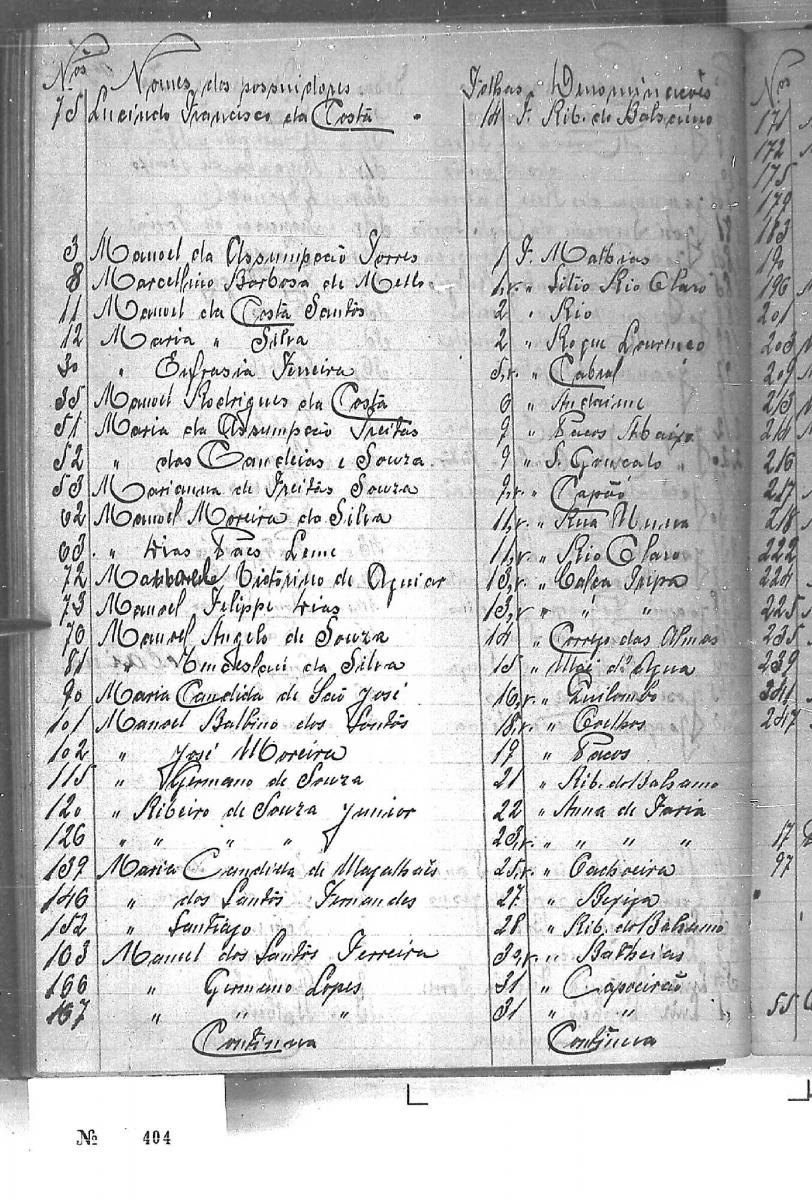 Nos Nomes dos possuidores Folhas Denominacões
75 Lucindo Francisco da Costa 14 F. Rib. do Balsamo
3 Manoel da Assumpcão Torres 1 F. Mathias
8 Marcellino Barbosa de Mello 1,v. " Sitio Rio Claro
11 Manoel da Costa Santos 2 " Rio
12 Maria " Silva 2 " Roque Lourenco
30 " Eufrasia Ferreira 5,v. " Cabral
35 Manoel Rodrigues da Costa 6 " Andaime
51 Maria da Assumpcão Freitas 9 " Pacos Abaixo
52 " das Candeias e Souza 9 " S. Goncalo "
53 Marianna de Freitas Souza 9,v. " Capão
62 Manoel Moreira da Silva 11,v. " Rua
63 " Dias Paes Leme 11,v. " Rio Claro
72 Manoel Victorino de Aguiar 13,v. " Calca Tripa
73 Manoel Felippe Dias 13,v. " " "
76 Manoel Angelo de Souza 14 " Corrego das Almas
81 " da Silva 15 " Mai d'Agua
90 Maria Candida de São José 16,v. " Quilombo
101 Manoel Balbino dos Santos 18,v. " Coelhos
102 " José Moreira 19 " Pacos
115 " Germano de Souza 21 " Rib. do Balsamo
120 " Ribeiro de Souza Junior 22 " Anna de Faria
126 " " " " 23,v. " " " "
139 Maria Candida de Magalhães 25,v. " Cachoeira
146 " dos Santos Fernandes 27 "
152 " Santiago 28 " Rib. do Balsamo
163 Manoel dos Santos Ferreira 30,v. " Batheias
166 " Germano Lopes 31 " Capoeirão
167 " " " 31 " "
Continua Continua
Nos
171
172
175
179
183
190
196
201
203
209
213
214
216
217
218
222
224
225
235
239
241
247
17
97
55
No 404